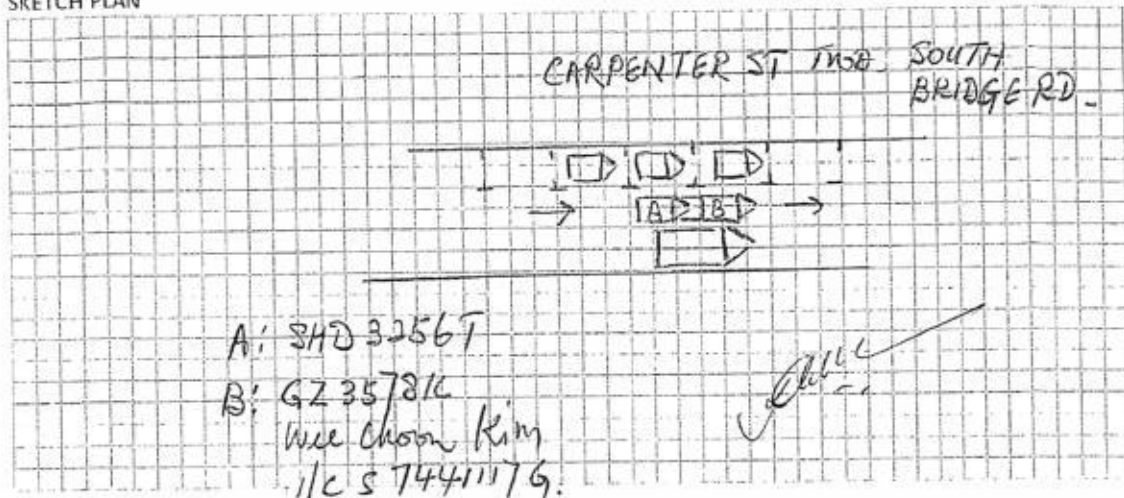 SKETCH PLAN
CARPENTER ST TWDS. SOUTH
BRIDGE RD.
A B
A: SHD 3256T
B: GZ 3578K
Wee Choon Kim
I/C S 7441117G.